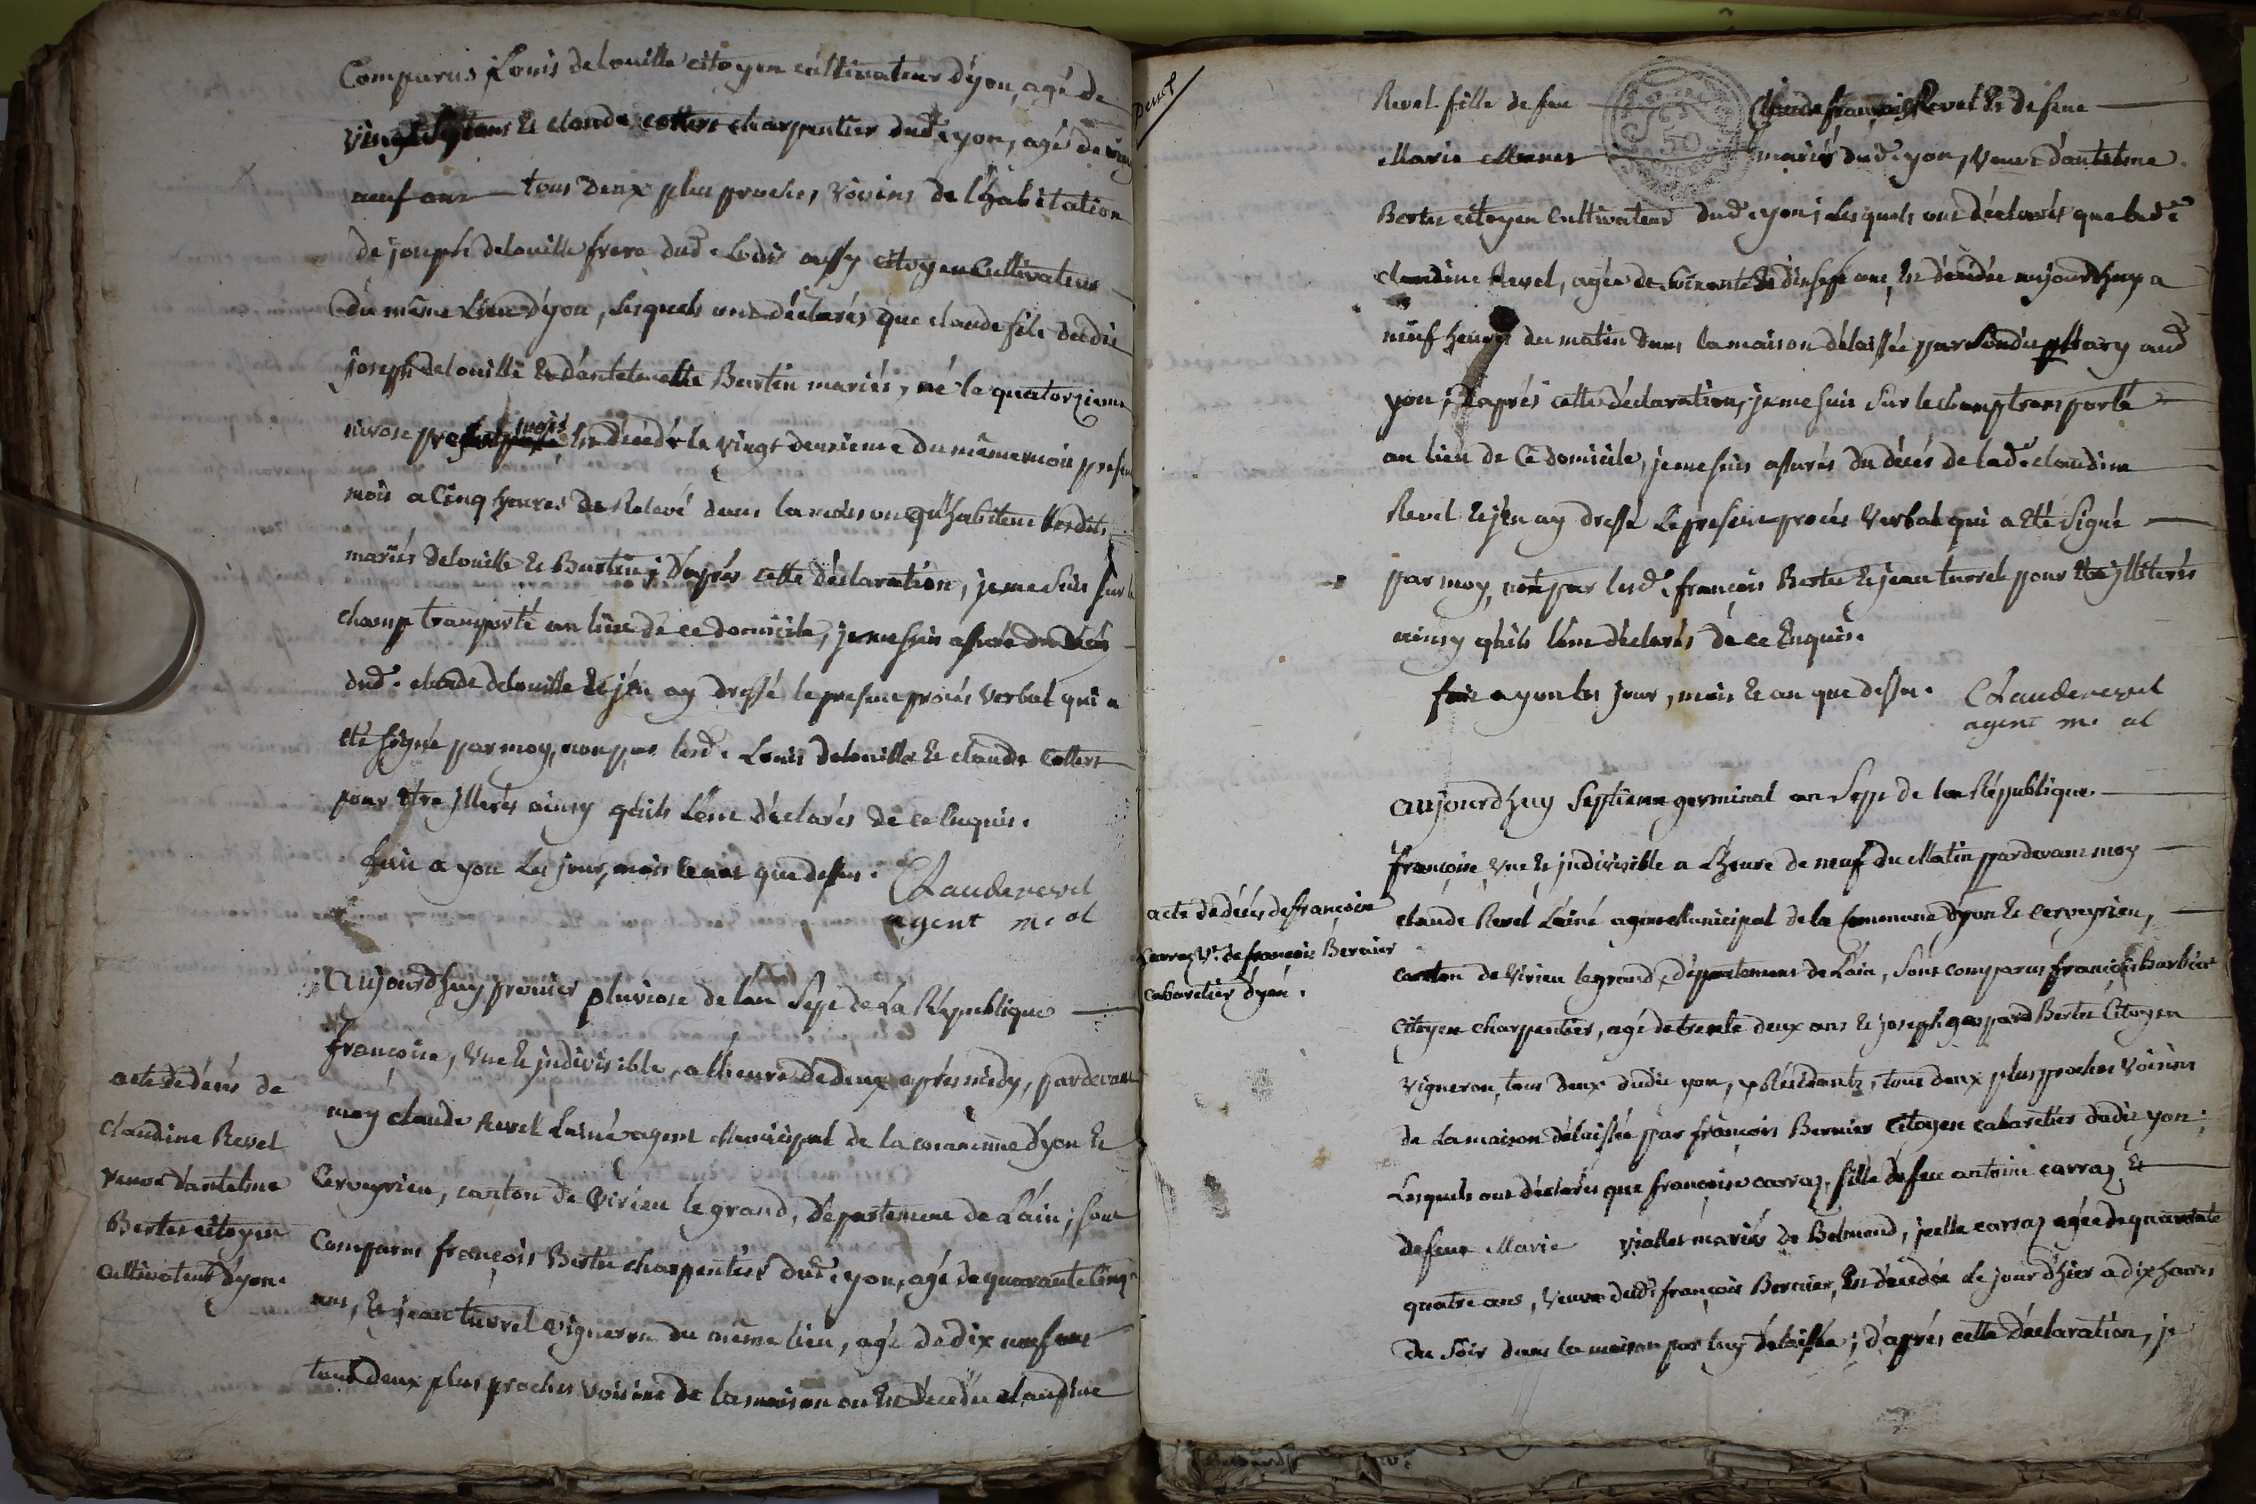 Comparus Louis delouille citoyen cultivateur d'yon, agé de
vingt ans et claude cottier charpentier dud. yon, agé de ving
neuf ans tous deux plus proches voisins de l'habitation
de joseph delouille frere dud. Louis aussy citoyen Cultivateur
du même Lieu d'yon, Lesquels ont déclarés que claude fils dudit
joseph delouille et d'antelmette Burtin mariés, né le quatorzieme
nivose mois est décédé le vingt deuxieme du même mois present
mois a Cinq heures de Relevé dans la maison qu'habitent lesdits
mariés delouille et Burtin; d'après cette déclaration, je me suis sur le
champ transporté au lieu de ce domicile, je me suis assuré du décés
dud. claude delouille et j'en ay dressé le present procés verbal qui a
eté signé par moy, non par lesd. Louis delouille et claude Cottier
pour etre jlleterés ainsy qu'ils L'ont déclarés de ce Enquis.
fait a yon Les jour, mois et an que dessus.
Clauderevel
agent m. al
acte de décés de
Claudine Revel
veuve d'antelme
Bertet citoyen
cultivateur d'yon.
aujourdhuy premier pluviose de l'an Sept de La République
françoise, une et jndivisible, a l'heure de deux aprés midy, pardevant
moy claude Revel L'ainé agent Municipal de la commune d'yon et
Cerveyrieu, canton de Virieu le grand, département de L'ain; sont
Comparus françois Bertet charpentier dud. yon, agé de quarante Cinq
ans, et jean turrel vigneron du même lieu, agé de dix neuf ans
tous deux plus proches voisins de la maison ou est décédée claudine
Revel fille de feu Claude françois Revel et de feue
Marie Monet mariés dud. yon, veuve d'antelme
Bertet citoyen Cultivateur dud. yon; Lesquels ont déclarés que lad.
claudine Revel, agée de soixante et dix sept ans, est décédée aujourdhuy a
neuf heures du matin dans la maison délaissée par sondit Mary aud.
yon; d'aprés cette déclaration, je me suis sur le champ transporté
au lieu de ce domicile, je me suis assurés du décés de lad. claudine
Revel et j'en ay dressé Le present procés verbal qui a eté signé
par moy, non par lesd. françois Bertet et jean turrel pour etre jlliterés
ainsy qu'ils l'ont déclarés de ce Enquis.
fait a yon les jour, mois et an que dessus.
Clauderevel
agent m. al
acte de décés de françoise
Carraz Ve. de françois Bernier
cabaretier d'yon.
aujourdhuy septieme germinal an Sept de la République
françoise, une et jndivisible a L'heure de neuf du Matin pardevant moy
claude Revel L'ainé agent Municipal de la Commune d'yon et Cerveyrieu,
canton de Virieu le grand, département de L'ain, sont comparus françois Barbier
Citoyen charpentier, agé de trente deux ans et joseph gaspard Bertet Citoyen
vigneron, tous deux dudit yon, y Résidants, tous deux plus proches voisins
de La maison délaissée par françois Bernier Citoyen cabaretier dudit yon;
Lesquels ont déclarés que françoise carraz, fille de feu antoine carraz et
de feue Marie viallet mariés de Belmond, jcelle carraz agée de quarante
quatre ans, veuve dud. françois Bernier, est décédée le jour d'hier a dix heures
du soir dans la maison par luy délaissée; d'aprés cette déclaration, je